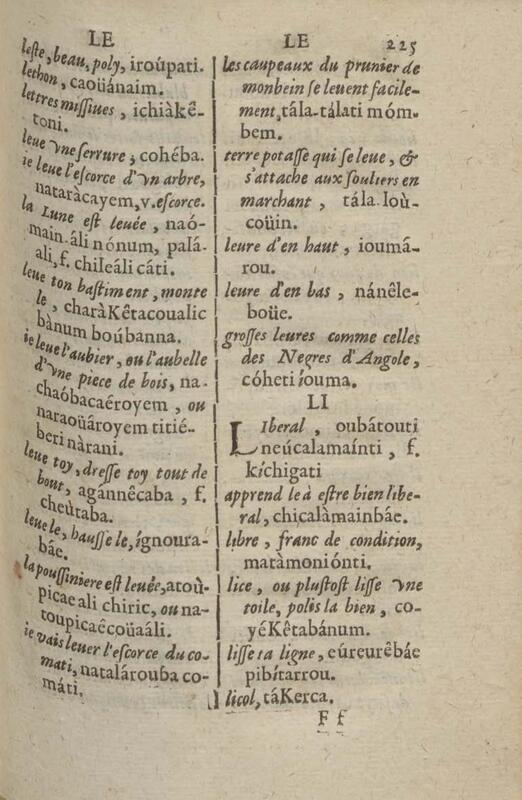 LE
leste, beau, poly, iroúpati.
lethon, caoüánaim.
lettres missiues, ichiàkê-
toni.
leue vne serrure, cohéba.
ie leue l'escorce d'vn arbre,
nataràcayem, v. escorce.
la Lune est leuée, naó-
main-áli nónum, palá-
ali, f. chileáli cáti.
leue ton bastiment, monte
le, charàKêtacoualic
bànum boúbanna.
ie leue l'aubier, ou l'aubelle
d'vne piece de bois, na-
chaóbacaéroyem, ou
naraoüároyem titié-
beri nàrani.
leue toy, dresse toy tout de
bout, agánnêcaba, f.
cheùtaba.
leue le, hausse le, ígnoura-
báe.
la poussiniere est leuée, atoù-
picae ali chiric, ou na-
toupicaêcoüaáli.
ie vais leuer l'escorce du co-
mati, natalárouba co-
máti.
LE 225
les caupeaux du prunier de
monbein se leuent facile-
ment, tála-tálati móm-
bem.
terre potasse qui se leue, &
s'attache aux souliers en
marchant, tála-loù-
coüin.
leure d'en haut, ioumá-
rou.
leure d'en bas, nánêle-
boüe.
grosses leures comme celles
des Negres d'Angole,
cóheti iouma.
LI
LIberal, oubátouti
neúcalamaínti, f.
kíchigati
apprend le à estre bien libe-
ral, chicalàmainbáe.
libre, franc de condition,
matàmoniónti.
lice, ou plustost lisse vne
toile, polis la bien, co-
yéKêtabánum.
lisse ta ligne, eúreurêbáe
pibítarrou.
licol, táKerca.
F f